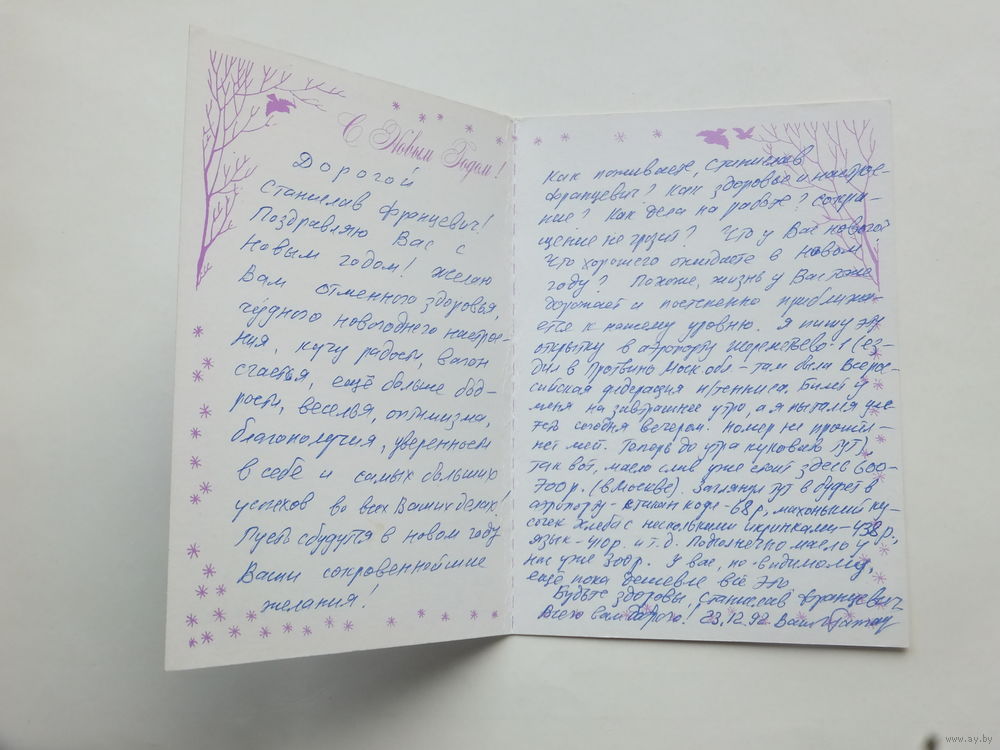 С Новым Годом!
Дорогой
Станислав Францевич!
Поздравляю Вас с
Новым годом! Желаю
Вам отменного здоровья,
чудного новогоднего настрое-
ния, кучу радости, вагон
счастья, ещё больше бод-
рости, веселья, оптимизма,
благополучия, уверенности
в себе и самых больших
успехов во всех Ваших делах!
Пусть сбудутся в новом году
Ваши сокровеннейшие
желания!
Как поживаете, Станислав
Францевич? Как здоровье и настрое-
ние? Как дела на работе? Сокра-
щение не грозит? Что у Вас нового?
Что хорошего ожидаете в Новом
году? Похоже, жизнь у Вас тоже
дорожает и постепенно приближа-
ется к нашему уровню. Я пишу эту
открытку в аэропорту Шереметьево-1 (ез-
дил в Протвино Моск. обл. - там была Всерос-
сийская федерация н/тенниса. Билет у
меня на завтрашнее утро, а я пытался уле-
теть сегодня вечером. Номер не прошёл -
нет мест. Теперь до утра куковать тут).
Так вот, масло слив. уже стоит здесь 600-
700 р. (в Москве). Заглянул тут в буфет в
аэропорту - стакан кофе - 68 р, махонький ку-
сочек хлеба с несколькими икринками - 438 р.,
язык - 410 р. и т.д. Подсолнечно масло у
нас уже 300 р. У вас, по-видимому,
ещё пока дешевле всё это
Будьте здоровы, Станислав Францевич
Всего вам доброго! 23.12.92 Ваш
www.ay.by